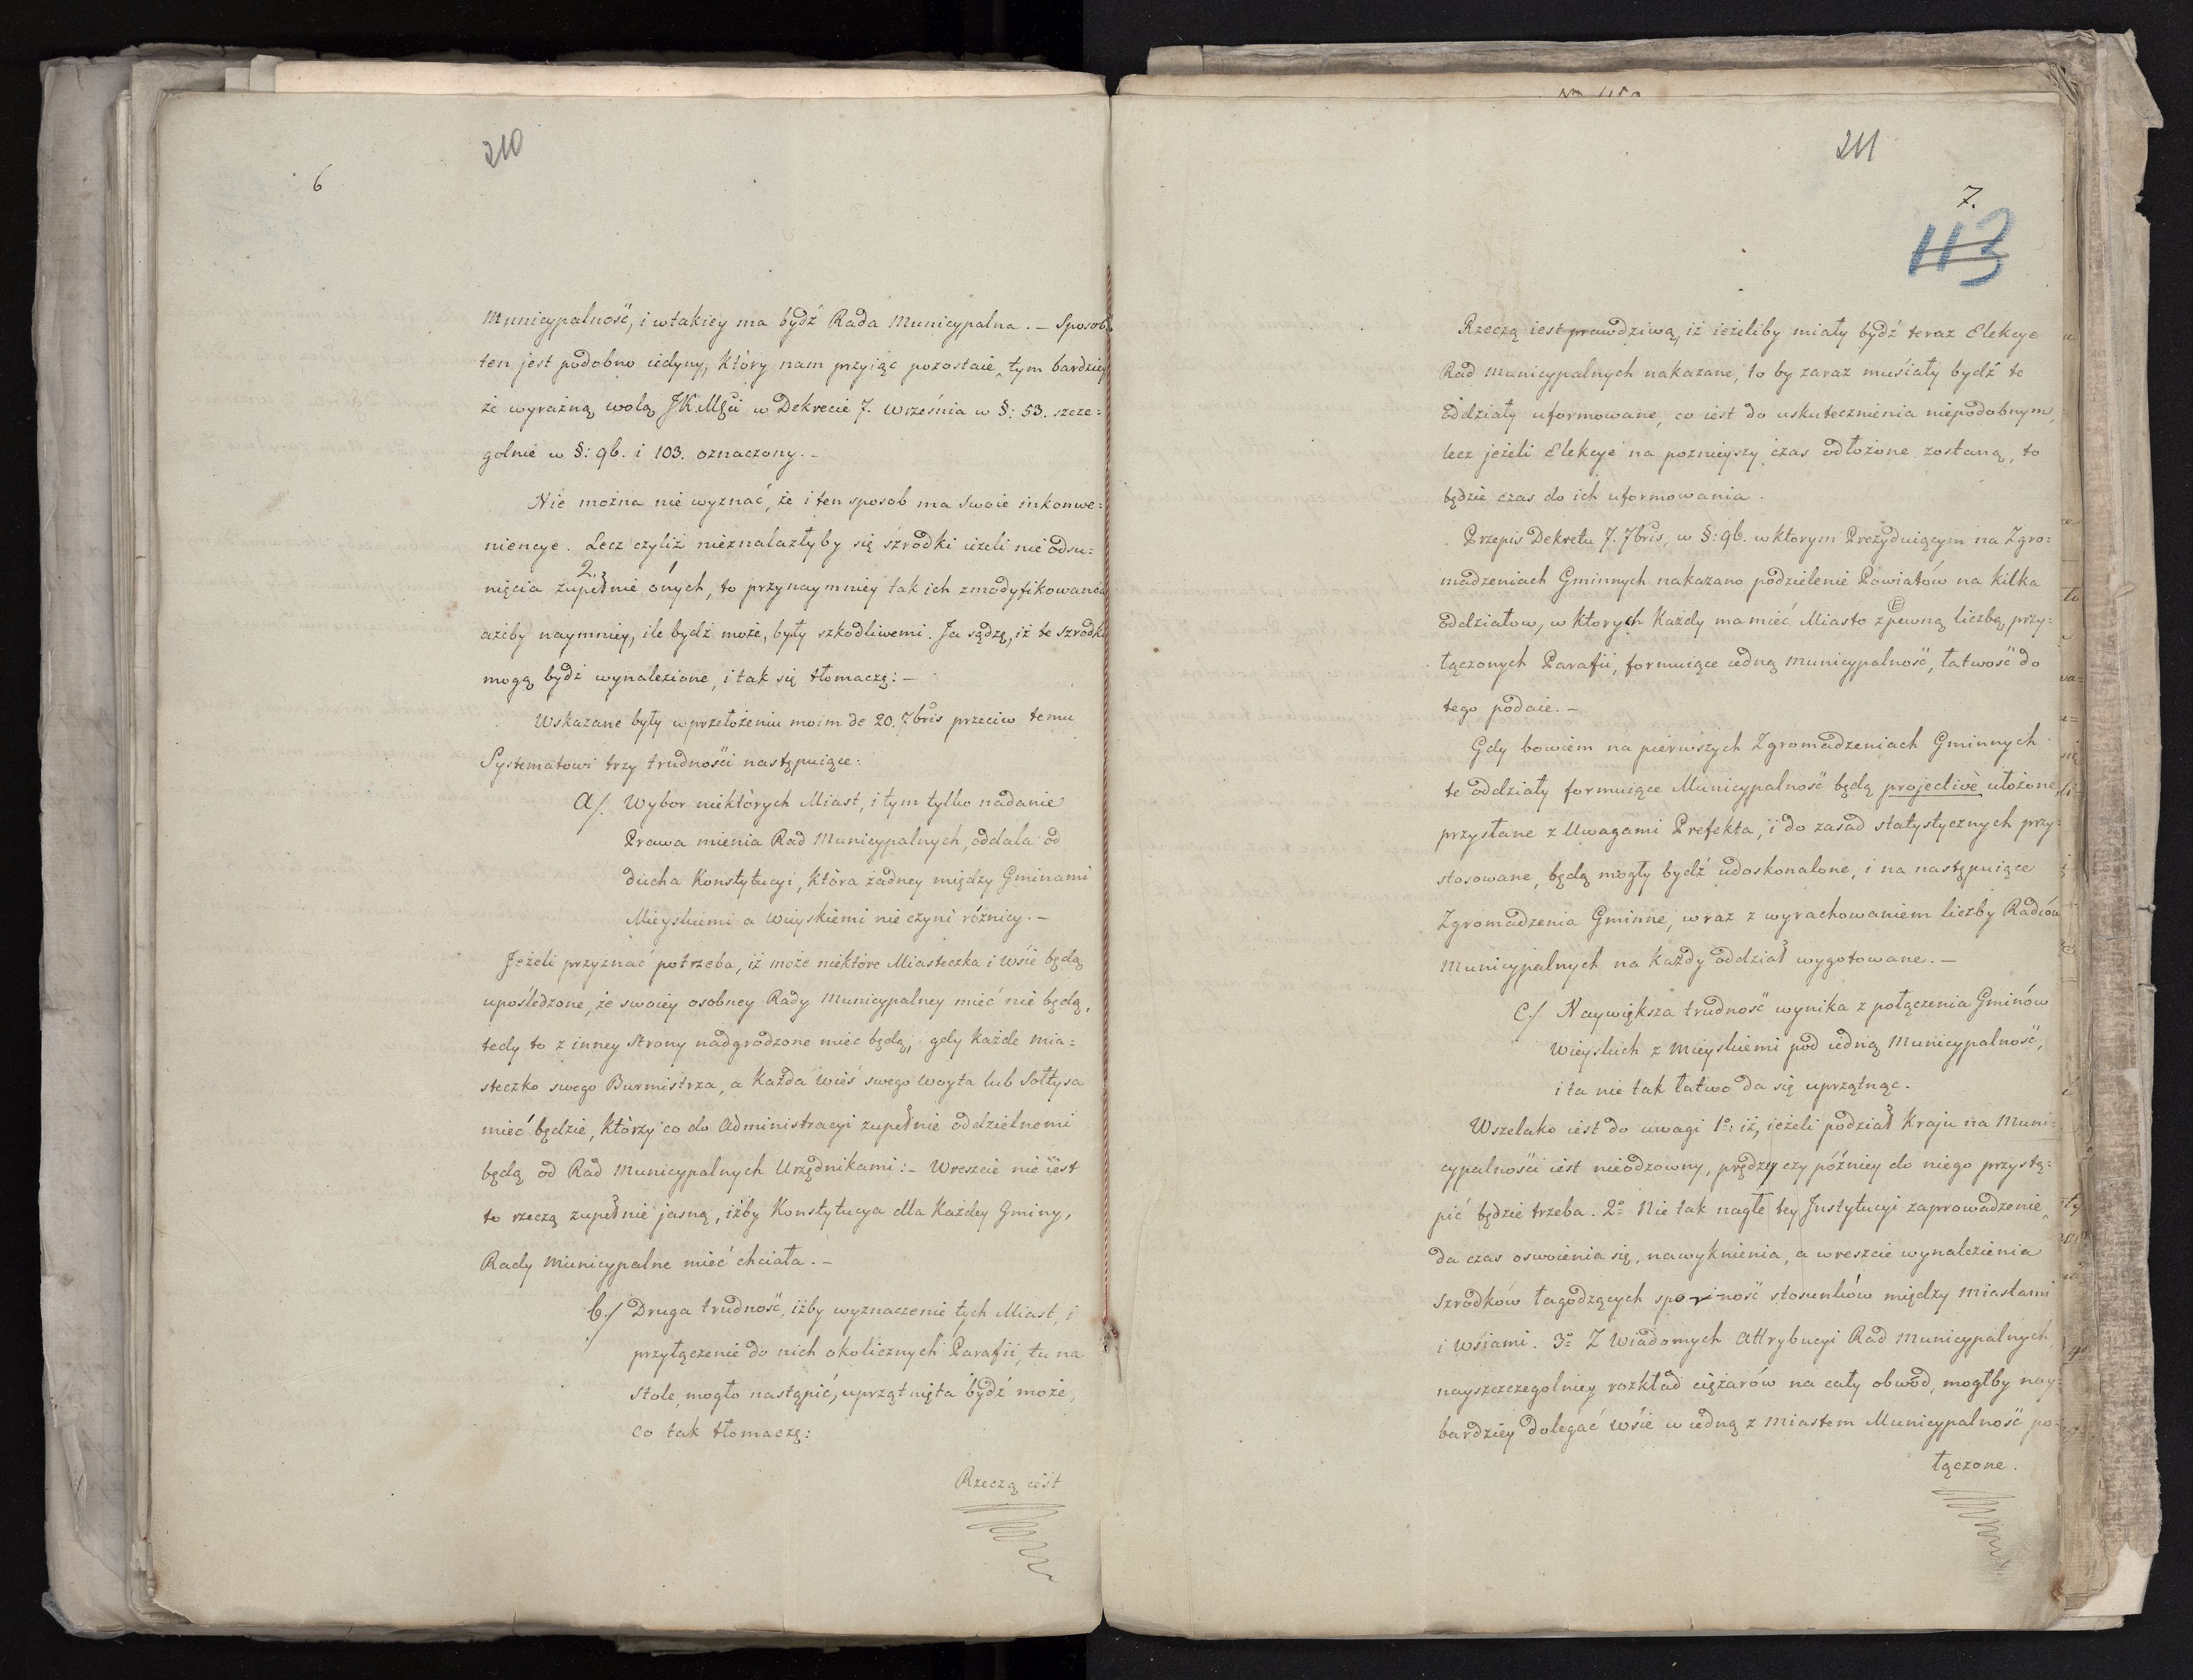 210
6
Municypalność, i w takiey ma bydź Rada Municypalna. – Sposob
ten jest podobno iedyny, który nam przyiąc pozostaie, tym bardziey
że wyraźną wolą JKMści w Dekrecie 7. Września w §: 53. szcze=
golnie w §: 96. i 103. oznaczony. –
Nie można nie wyznać, że i ten sposob ma swoie inkonwe=
niencye. Lecz czyliż nieznalazłyby się szrodki ieżeli nie odsu=
2.
nięcia zupełnie onych, to przynaymniey tak ich zmodyfikowania
ażeby naymniey, ile bydź może, były szkodliwemi. Ja sądzę, iż te szrodki
mogą bydź wynalezione, i tak się tłomaczę: –
Wskazane były w przełożeniu moim de 20. 7bris przeciw temu
Systematowi trzy trudności następuiące:
a/. Wybor niektórych Miast, i tym tylko nadanie
Prawa mienia Rad Municypalnych, oddala od
ducha Konstytucyi, która żadney między Gminami
Mieyskiemi a Wieyskiemi nie czyni różnicy. –
Jeżeli przyznać potrzeba, iż może niektóre Miasteczka i Wsie będą
upośledzone, że swoiey osobney Rady Municypalney mieć nie będą,
tedy to z inney strony nadgrodzone mieć będą, gdy każde mia=
steczko swego Burmistrza, a Każda wieś swego woyta lub Sołtysa
mieć będzie, którzy co do Administracyi zupełnie oddzielnemi
będą od Rad Municypalnych Urzędnikami: – Wreszcie nie iest
to rzeczą zupełnie jasną, iżby Konstytucya dla Każdey Gminy,
Rady Municypalne mieć chciała. –
b./ Druga trudność, iżby wyznaczenie tych Miast, i
przyłączenie do nich okolicznych Parafii, tu na
stole, mogło nastąpić, uprzątnięta bydź może,
co tak tłomaczę:
Rzeczą iest
211
7.
113
Rzeczą iest prawdziwą, iż ieżeliby miały bydź teraz Elekcye
Rad Municypalnych nakazane, to by zaraz musiały bydź te
oddziały uformowane, co iest do uskutecznienia niepodobnym,
lecz jeżeli Elekcye na poznieyszy czas odłożone zostaną, to
będzie czas do ich uformowania.
Przepis Dekretu 7. 7bris, w §: 96. w ktorym Prezyduiącym na Zgro=
madzeniach Gminnych nakazano podzielenie Powiatów na kilka
oddziałow, w ktorych Każdy ma mieć Miasto z pewną liczbą przy=
łączonych Parafii, formuiące iedną Municypalność, łatwość do
tego podaie. –
Gdy bowiem na pierwszych Zgromadzeniach Gminnych
te oddziały formuiące Municypalność będą projective ułożone,
przysłane z Uwagami Prefekta, i do zasad statystycznych przy=
stosowane, będą mogły bydź udoskonalone, i na następuiące
Zgromadzenia Gminne, wraz z wyrachowaniem liczby Radców
Municypalnych na Każdy oddział wygotowane. –
c./ Naywiększa trudność wynika z połączenia Gminów
Wieyskich z Mieyskiemi pod iedną Municypalność,
i ta nie tak łatwo da się uprzątnąc.
Wszelako iest do uwagi 1o: iż, ieżeli podział Kraju na Muni=
cypalności iest nieodzowny, prędzey czy później do niego przystą=
pić będzie trzeba. 2o Nie tak nagłe tey Instytucyi zaprowadzenie,
da czas oswoienia się, nawyknienia, a wreszcie wynalezienia
Szrodków łagodzących sporność stosunków między Miastami
i Wsiami. 3o Z Wiadomych Attrybucyi Rad Municypalnych,
nayszczegolniey rozkład ciężarów na cały obwód, mogłby nay=
bardziey dolegać Wsie w iedną z Miastem Municypalność po=
łączone.